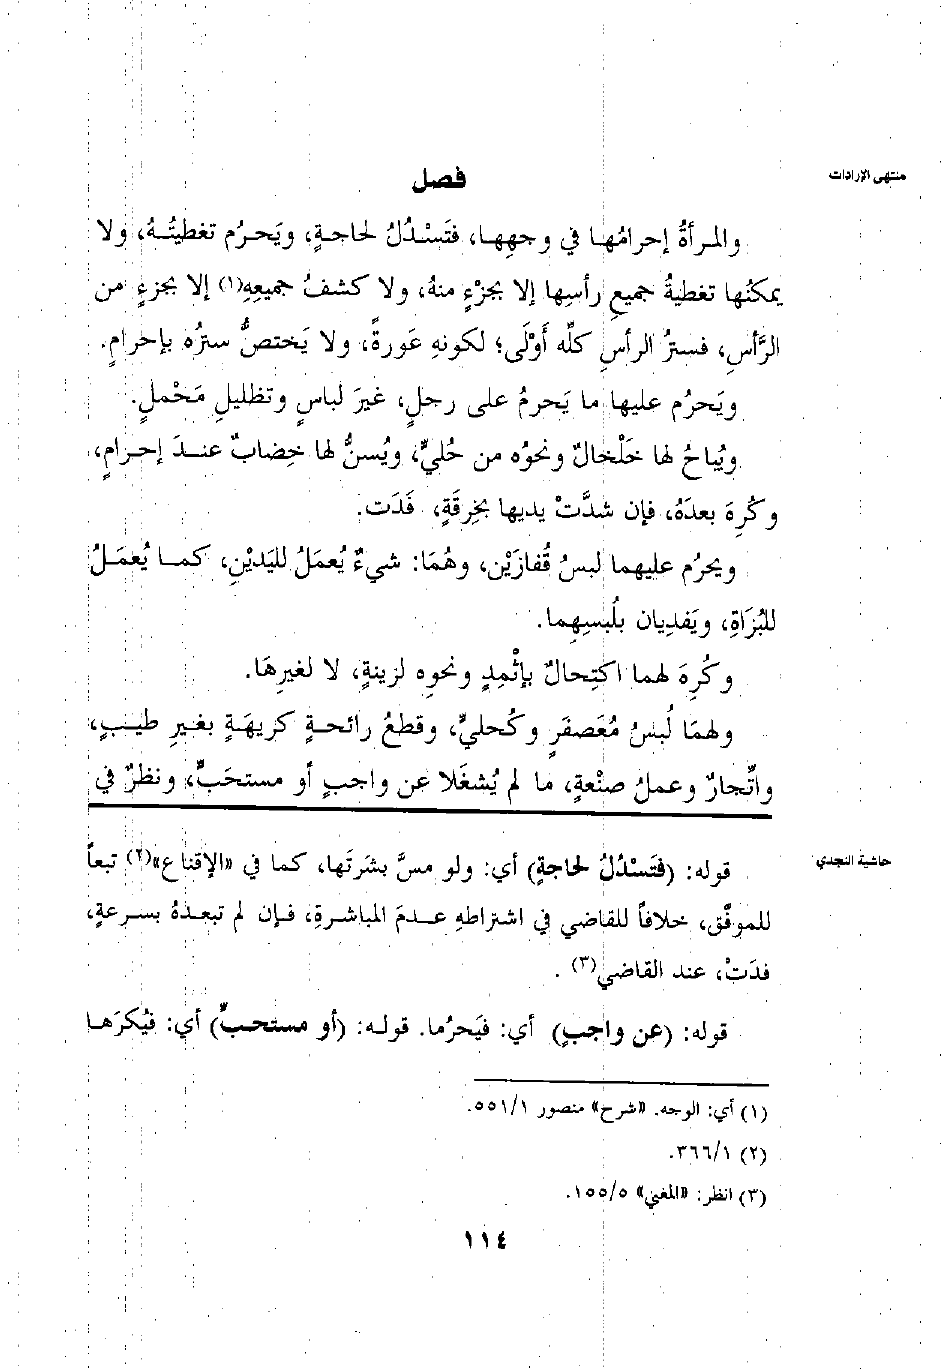 منتهى الإرادات
فصل
والمرأةُ إحرامُها في وجهِها، فتَسْدُلُ لحاجةٍ، ويَحرُم تغطيتُهُ، ولا
يمكنُها تغطيةُ جميعِ رأسِها إلا بجزْءٍ منهُ، ولا كشفُ جميعِهِ(١) إلا بجزءٍ من
الرَّأسِ، فسترُ الرأسِ كلِّه أَوْلَى؛ لكونهِ عَورةً، ولا يَختصُّ سترُه بإحرامٍ.
ويَحرُم عليها ما يَحرمُ على رجلٍ، غيرَ لباسٍ وتظليلِ مَحْملٍ.
ويُباحُ لها خَلْخالٌ ونحوُه من حُليٍّ، ويُسنُّ لها خِضابٌ عندَ إحرامٍ،
وكُرِهَ بعدَهُ، فإن شدَّتْ يديها بخِرقَةٍ، فَدَت.
ويحرُم عليهما لبسُ قُفازَيْن، وهُمَا: شيءٌ يُعمَلُ لليَديْنِ، كما يُعمَلُ
للبُزَاةِ، ويَفدِيان بلُبسِهِما.
وكُرِهَ لهما اكتِحالٌ بإثْمِدٍ ونحوِه لزينةٍ، لا لغيرِهَا.
ولهمَا لُبسُ مُعَصفَرٍ وكُحليٍّ، وقطعُ رائحةٍ كريهَةٍ بغيرِ طيبٍ،
واتِّجارٌ وعملُ صنْعةٍ، ما لم يُشغَلا عن واجبٍ أو مستحَبٍّ، ونظرٌ في
حاشية النجدي
قوله: (فتَسْدُلُ لحاجةٍ) أي: ولو مسَّ بشرتَها، كما في «الإقناع»(٢) تبعاً
للموفَّق، خلافاً للقاضي في اشتراطهِ عدمَ المباشرةِ، فإن لم تبعدهُ بسرعةٍ،
فدَتْ، عند القاضي(٣).
قوله: (عن واجبٍ) أي: فيَحرُما. قوله: (أو مستحبٍّ) أي: فيُكرَها
(١) أي: الوجه. «شرح» منصور ٥٥١/١.
(٢) ٣٦٦/١.
(٣) انظر: «المغني» ١٥٥/٥.
١١٤